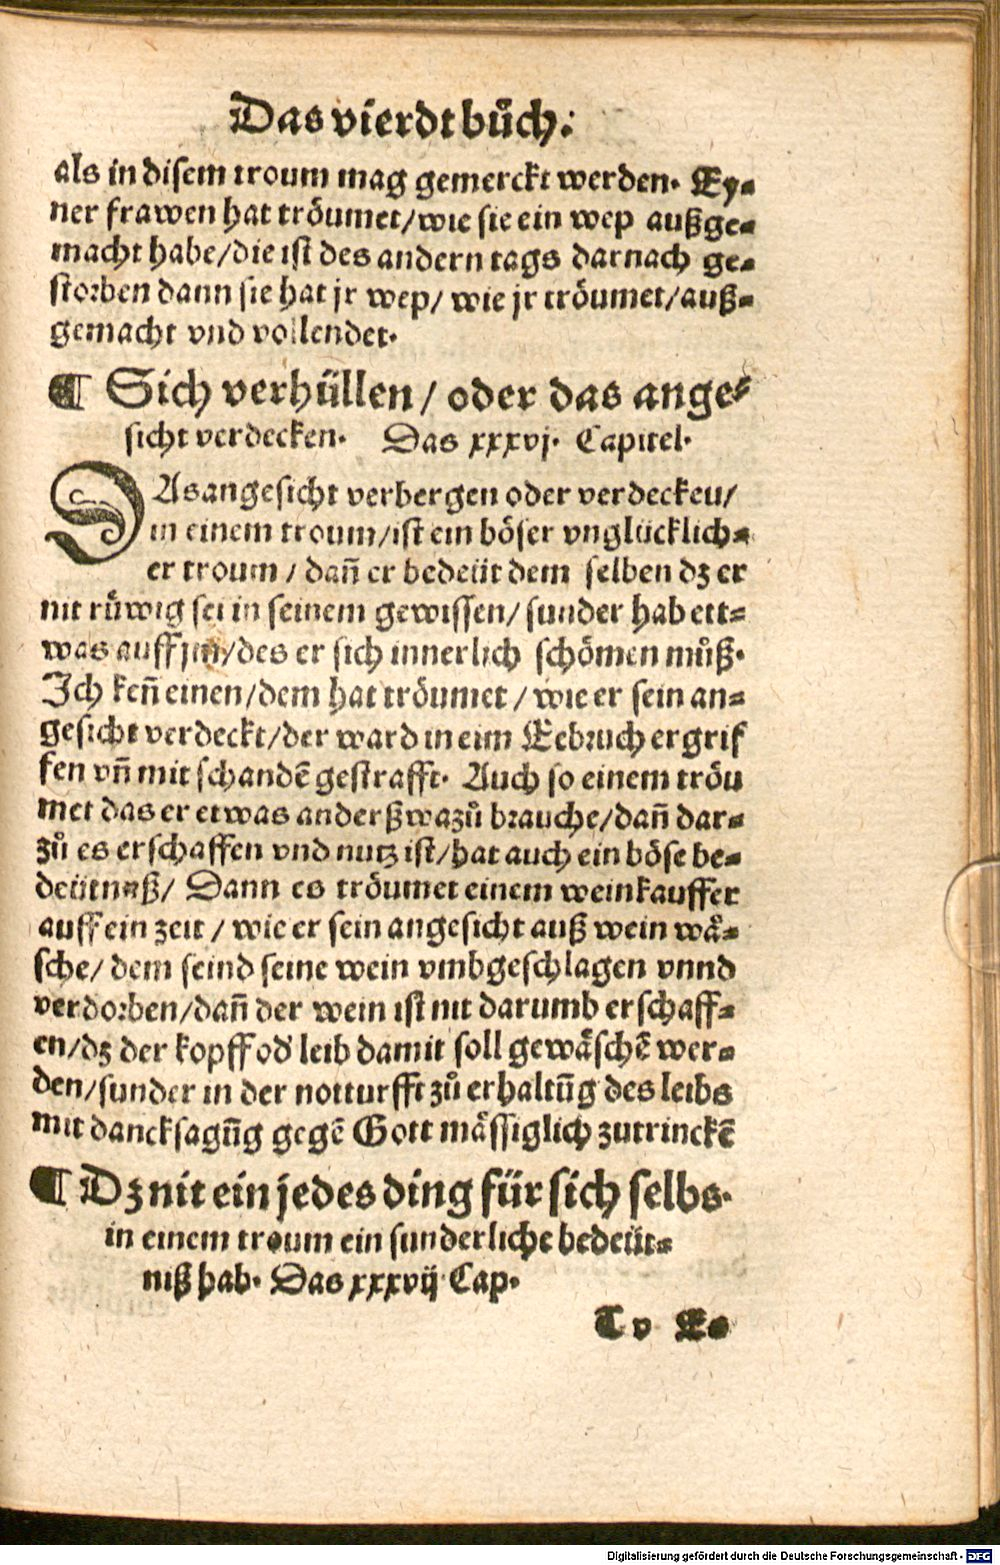 Das vierdt bůch.
als in disem troum mag gemerckt werden. Ey⸗
ner frawen hat tröumet/wie sie ein wep außge⸗
macht habe/die ist des andern tags darnach ge⸗
storben dann sie hat jr wep/ wie jr tröumet/auß⸗
gemacht vnd vollendet.
¶ Sich verhüllen / oder das ange⸗
sicht verdecken. Das xxxvj. Capitel.
DAs angesicht verbergen oder verdecken/
in einem troum/ist ein böser vnglücklich⸗
er troum / dañ er bedeüt dem selben dz er
nit rüwig sei in seinem gewissen/ sunder hab ett⸗
was auff jm/des er sich innerlich schömen můß.
Ich keñ einen/dem hat tröumet / wie er sein an⸗
gesicht verdeckt/der ward in eim Eebruch ergrif
fen vñ mit schandẽ gestrafft. Auch so einem tröu
met das er etwas anderßwazů brauche/dañ dar⸗
zů es erschaffen vnd nutz ist/hat auch ein böse be⸗
deütnuß/ Dann es tröumet einem weinkauffer
auff ein zeit / wie er sein angesicht auß wein wä⸗
sche/ dem seind seine wein vmbgeschlagen vnnd
verdorben/dañ der wein ist nit darumb erschaff⸗
en/dz der kopff od' leib damit soll gewäschẽ wer⸗
den/sunder in der notturfft zů erhaltũg des leibs
mit dancksagũg gegẽ Gott mässiglich zutrinckẽ
¶ Dz nit ein jedes ding für sich selbs.
in einem troum ein sunderliche bedeüt⸗
niß hab. Das xxxvij Cap.
T v E⸗
Digitalisierung gefördert durch die Deutsche Forschungsgemeinschaft - DFG